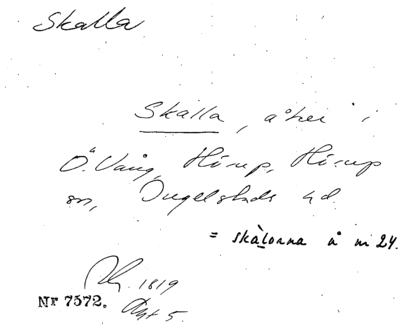 Skalla
Skalla, åker i
Ö. Vång, Hörup, Hörup
sn, Ingelstads hd.
= skàlorna å nr 24.
1819
Nr 7572. Akt 5.